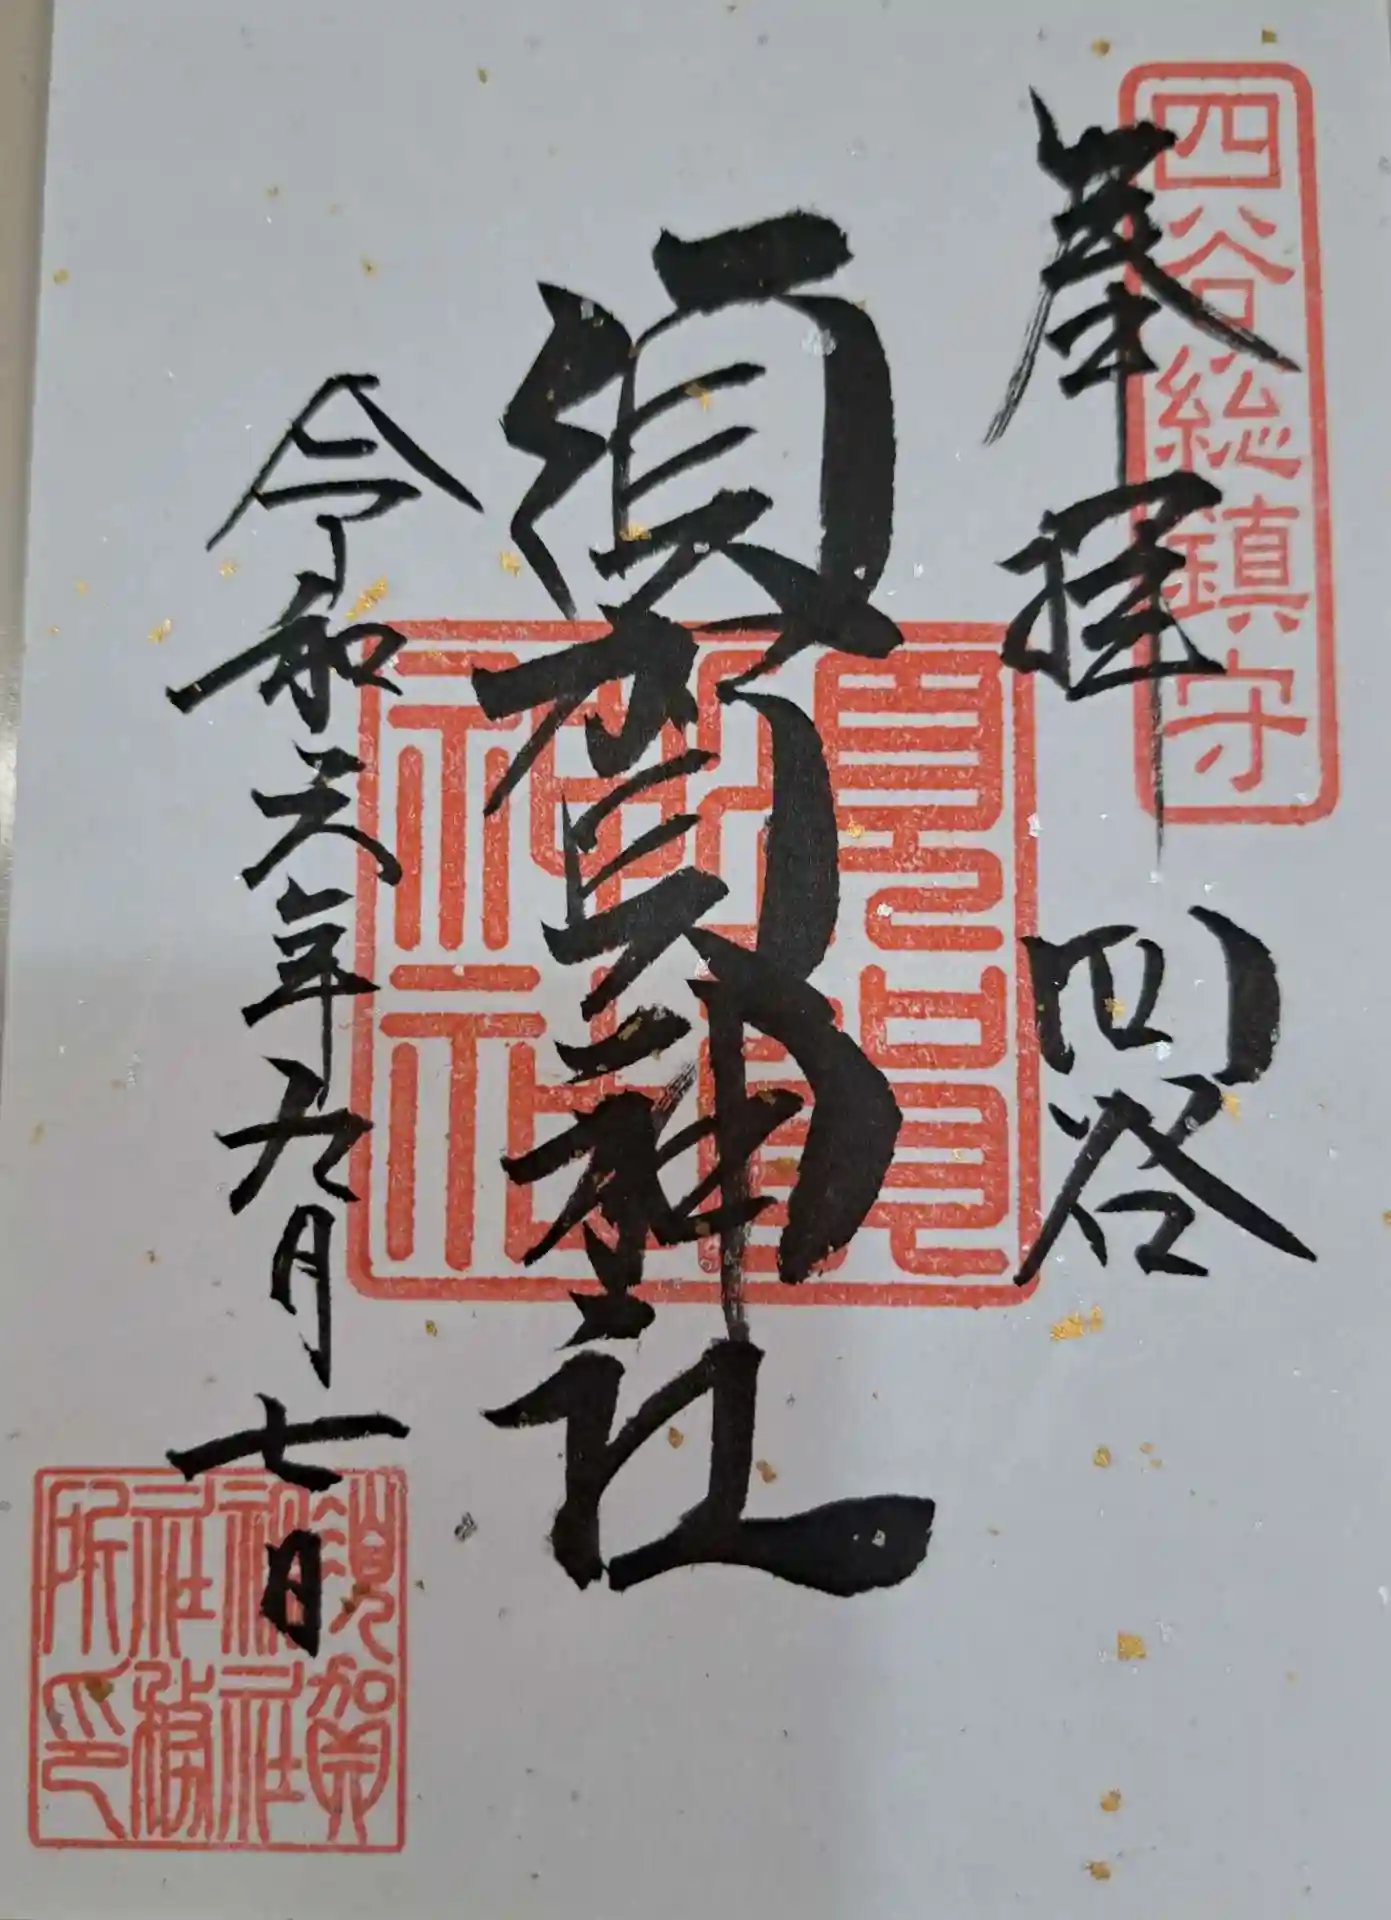 四谷総鎮守
奉拝 四谷
須賀神社
令和六年九月七日
須賀神社社務所印